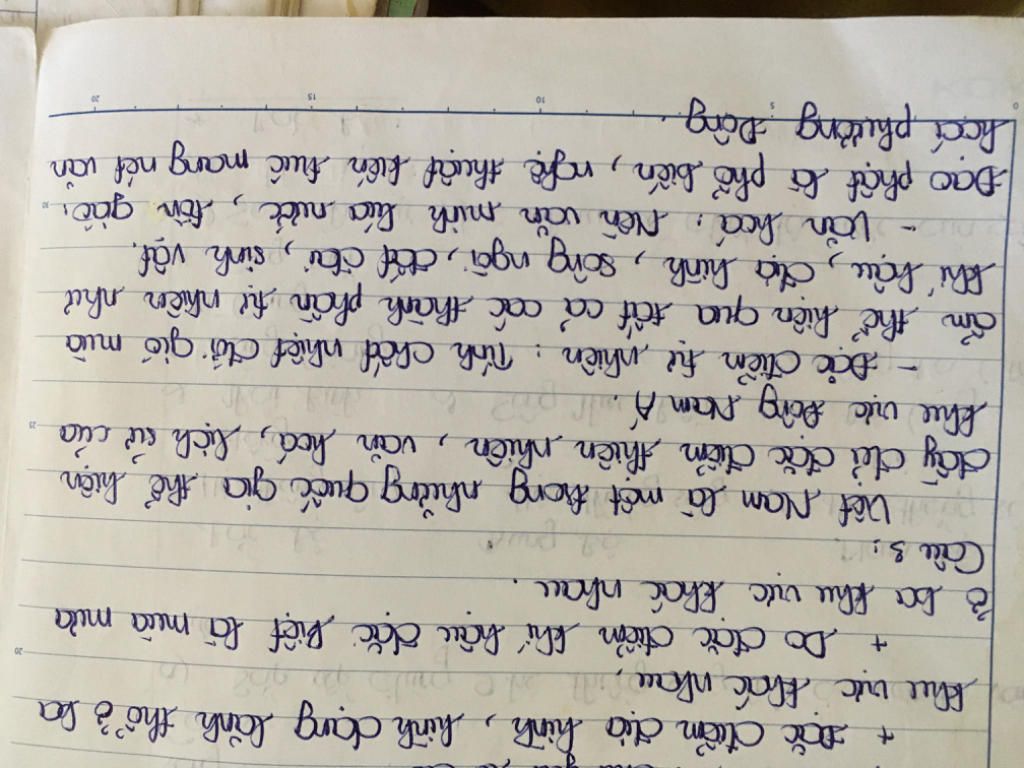 + Đặc điểm địa hình, hình dạng lãnh thổ ở ba
khu vực khác nhau,
+ Do đặc điểm khí hậu đặc biệt là mùa mưa
ở ba khu vực khác nhau.
Câu 3:
Việt Nam là một trong những quốc gia thể hiện
đầy đủ đặc điểm thiên nhiên, văn hoá, lịch sử của
khu vực Đông Nam Á.
- Đặc điểm tự nhiên: Tính chất nhiệt đới gió mùa
ẩm thể hiện qua tất cả các thành phần tự nhiên như
khí hậu, địa hình, sông ngòi, đất đai, sinh vật.
- Văn hoá: Nền văn minh lúa nước, tôn giáo:
Đạo phật là phổ biến, nghệ thuật kiến trúc mang nét văn
hoá phương Đông.
0 5 10 15 20
20
25
30